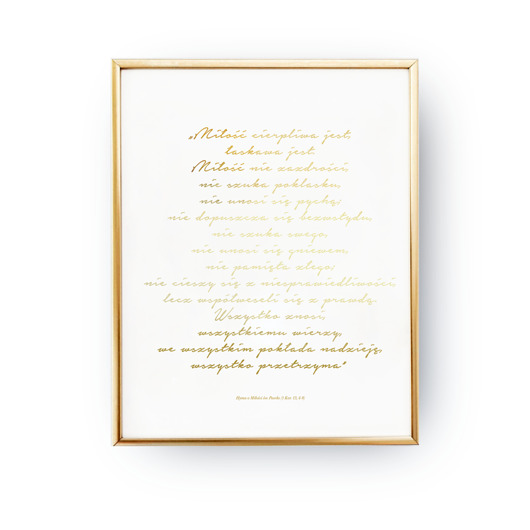 „Miłość cierpliwa jest,
łaskawa jest.
Miłość nie zazdrości,
nie szuka poklasku,
nie unosi się pychą;
nie dopuszcza się bezwstydu,
nie szuka swego,
nie unosi się gniewem,
nie pamięta złego;
nie cieszy się z niesprawiedliwości,
lecz współweseli się z prawdą.
Wszystko znosi,
wszystkiemu wierzy,
we wszystkim pokłada nadzieję,
wszystko przetrzyma”